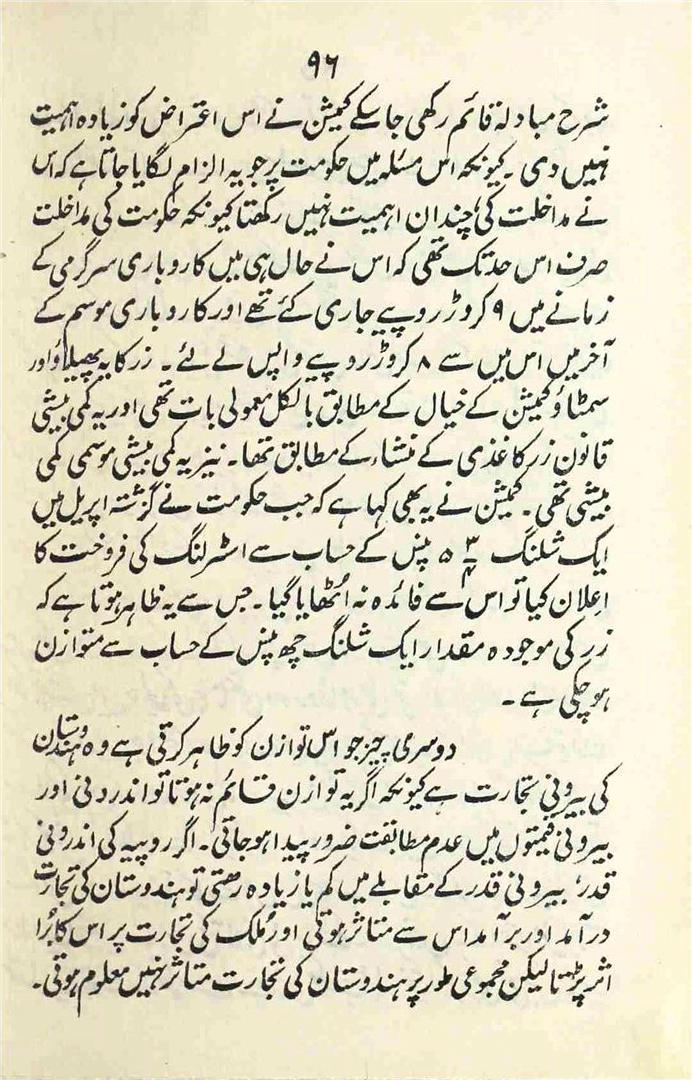 ۹۶
شرح مبادلہ قائم رکھی جاسکے کمیشن نے اس اعتراض کو زیادہ اہمیت
نہیں دی۔ کیونکہ اس مسئلہ میں حکومت پر جو یہ الزام لگایا جاتا ہے کہ اس
نے مداخلت کی؛ چنداں اہمیت نہیں رکھتا کیونکہ حکومت کی مداخلت
صرف اس حد تک تھی کہ اس نے حال ہی میں کاروباری سرگرمی کے
زمانے میں ۹ کروڑ روپیے جاری کئے تھے اور کاروباری موسم کے
آخر میں اس میں سے ۸ کروڑ روپیے واپس لے لئے۔ زر کا یہ پھیلاؤ اور
سمٹاؤ کمیشن کے خیال کے مطابق بالکل معمولی بات تھی اور یہ کمی بیشی
قانون زر کاغذی کے منشاء کے مطابق تھا۔ نیز یہ کمی بیشی موسمی کمی
بیشی تھی۔ کمیشن نے یہ بھی کہا ہے کہ جب حکومت نے گزشتہ اپریل میں
ایک شلنگ ۵ ۳/۴ پنس کے حساب سے اسٹرلنگ کی فروخت کا
اعلان کیا تو اس سے فائدہ نہ اُٹھایا گیا۔ جس سے یہ ظاہر ہوتا ہے کہ
زر کی موجودہ مقدار ایک شلنگ چھ پنس کے حساب سے متوازن
ہوچکی ہے۔
دوسری چیز جو اس توازن کو ظاہر کرتی ہے وہ ہندوستان
کی بیرونی تجارت ہے کیونکہ اگر یہ توازن قائم نہ ہوتا تو اندرونی اور
بیرونی قیمتوں میں عدم مطابقت ضرور پیدا ہوجاتی۔ اگر روپیہ کی اندرونی
قدر، بیرونی قدر کے مقابلے میں کم یا زیادہ رہتی تو ہندوستان کی تجارت
درآمد اور برآمد اس سے متاثر ہوتی اور ملک کی تجارت پر اس کا بُرا
اثر پڑتا لیکن مجموعی طور پر ہندوستان کی تجارت متاثر نہیں معلوم ہوتی۔